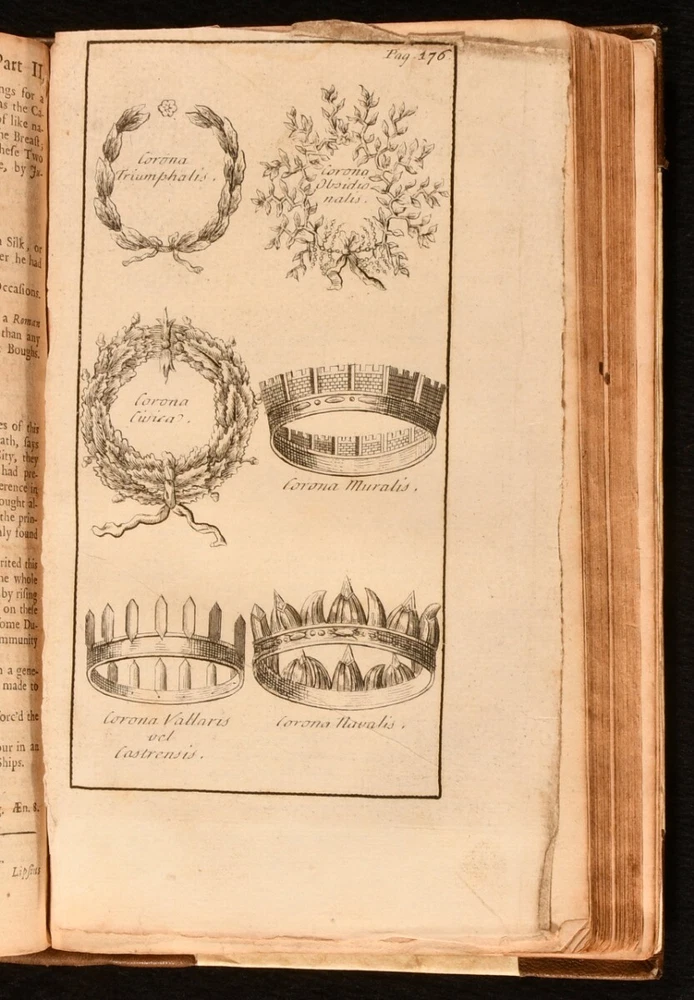 Part II,
ngs for a
as the Ca-
of like na-
he Breast,
hese Two
e, by Ju-
Silk, or
er he had
Occasions.
a Roman
than any
Boughs.
es of this
ath, says
City, they
had pre-
erence in
ought al-
the prin-
nly found
rited this
he whole
by rising
on these
ome Du-
mmunity
n a gene-
made to
forc'd the
our in an
Ships.
Æn. 8.
Lipsius
Pag. 176
Corona
Triumphalis.
Corona
Obsidio-
nalis.
Corona
Civica.
Corona Muralis.
Corona Vallaris
vel
Castrensis.
Corona Navalis.